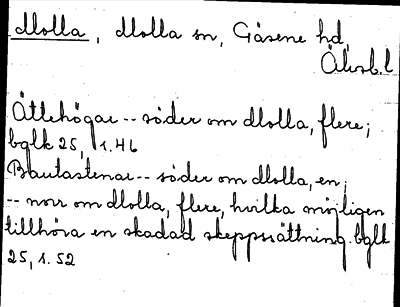 Molla, Molla sn, Gäsene hd,
Älvsb. l
Ättehögar -- söder om Molla, flere;
bglk 25, 1.46
Bautastenar -- söder om Molla, en;
-- norr om Molla, flere, hvilka möjligen
tillhöra en skadad skeppssättning. bglk
25, 1.52